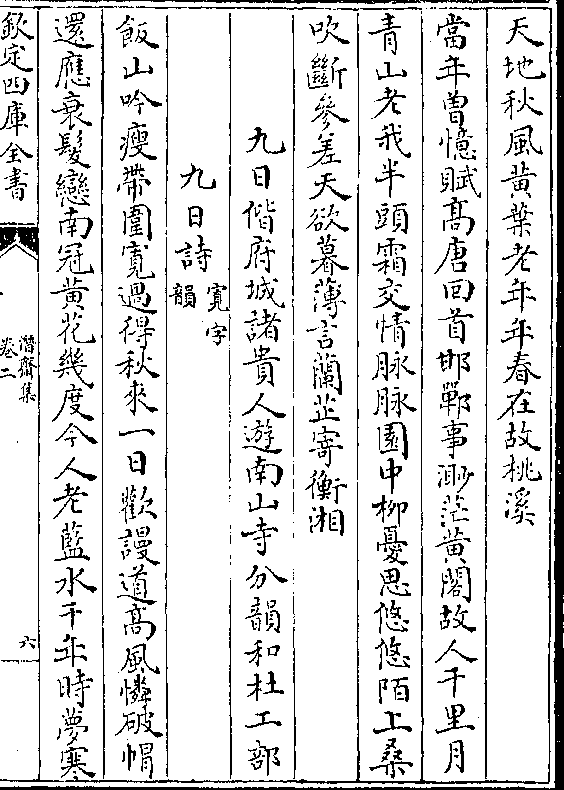 天地秋風黃葉老年年春在故桃溪
當年曽憶賦髙唐回首邯鄲事渺茫黃閣故人千里月
青山老我半頭霜交情脉脉園中柳憂思悠悠陌上桑
吹斷參差天欲暮薄言蘭芷寄衡湘
九日偕府城諸貴人遊南山寺分韻和杜工部
九日詩寛字韻
飯山吟瘦帶圍寛過得秋來一日歡謾道髙風憐破帽
還應衰髮戀南冠黃花幾度今人老藍水千年時夢寒
欽定四庫全書
潛齋集
卷二
六